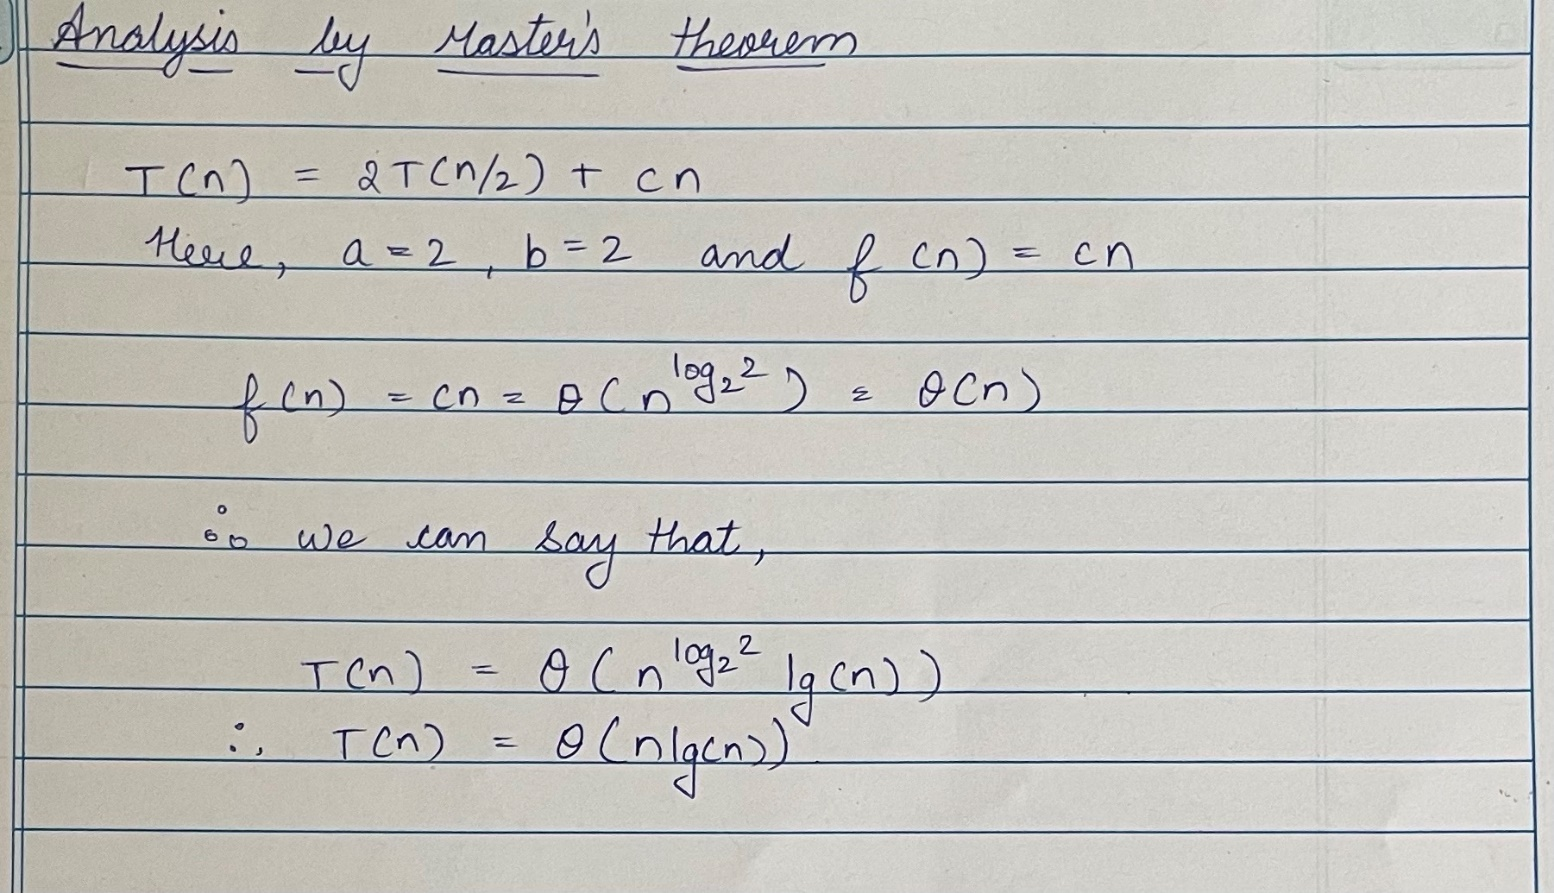 Analysis by Master's theorem
T(n) = 2T(n/2) + cn
Here, a = 2, b = 2 and f(n) = cn
f(n) = cn = θ(n^log₂2) = θ(n)
∴ we can say that,
T(n) = θ(n^log₂2 lg(n))
∴ T(n) = θ(nlg(n))